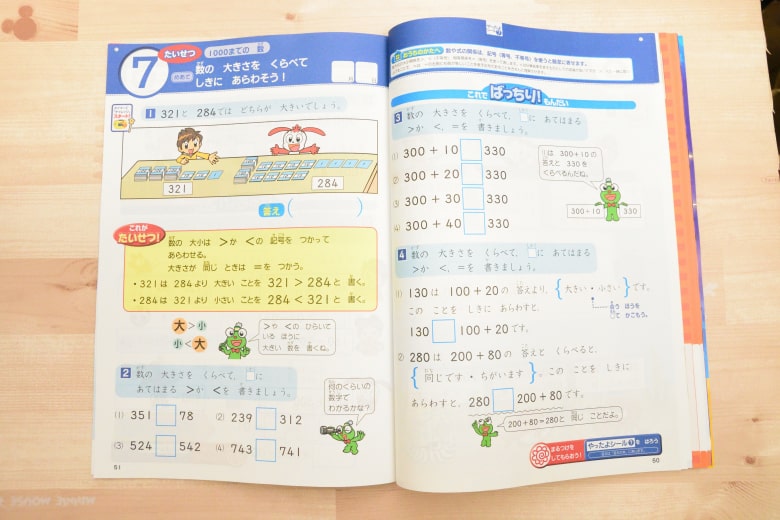 7
たいせつ
1000までの 数
めあて
数の 大きさを くらべて
しきに あらわそう!
月 日
1 321と 284では どちらが 大きいでしょう。
321
284
答え ( )
これが
たいせつ!
数の 大小は >か <の 記号を つかって
あらわせる。
大きさが 同じ ときは =を つかう。
・321は 284より 大きい ことを 321>284と 書く。
・284は 321より 小さい ことを 284<321と 書く。
大>小
小<大
>や <の ひらいて
いる ほうに
大きい 数を 書くね。
2 数の 大きさを くらべて、□に
あてはまる >か <を 書きましょう。
(1) 351□78 (2) 239□312
(3) 524□542 (4) 743□741
何のくらいの
数字で
わかるかな?
51
おうちのかたへ
これで ばっちり! もんだい
3 数の 大きさを くらべて、□に あてはまる
>か <、=を 書きましょう。
(1) 300+10□330
(2) 300+20□330
(3) 300+30□330
(4) 300+40□330
(1)は 300+10の
答えと 330を
くらべるんだね。
300+10□330
4 数の 大きさを くらべて、□に あてはまる
>か <、=を 書きましょう。
(1) 130は 100+20の 答えより、{大きい・小さい}です。
合う ほうを
で かこもう。
この ことを しきに あらわすと、
130□100+20です。
(2) 280は 200+80の 答えと くらべると、
{同じです・ちがいます}。この ことを しきに
あらわすと、280□200+80です。
200+80=280と 同じ ことだよ。
まるつけを
してもらおう!
やったよシール7を はろう
50